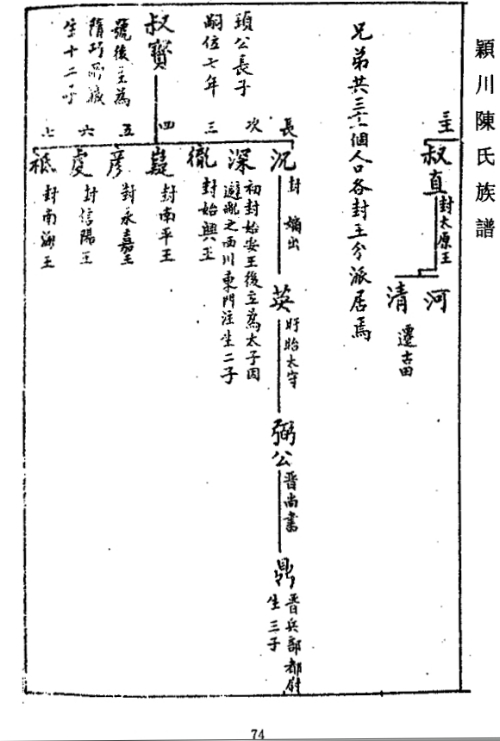 穎川陳氏族譜
主
叔直
封太原王
河
清
遷古田
兄弟共三六個人口各封王分派居焉
叔寶
頊公長子
嗣位七年
號後主為
隋巧所滅
生十二子
長
況
封
嫡出
英
盱眙太守
弼公
晋尚書
鼎
晋兵部都尉
生三子
次
深
初封始安王後立為太子因
避亂之西川東門注生二子
三
徹
封始興王
四
嶷
封南平王
五
彦
封永嘉王
六
虔
封信陽王
七
祗
封南海王
74